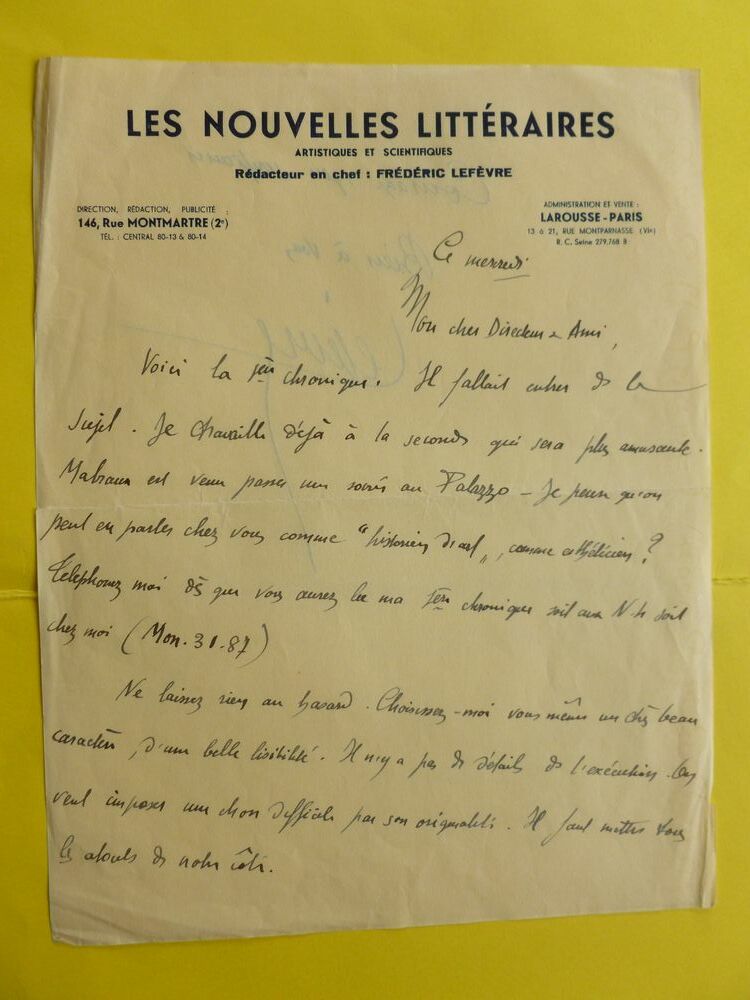 LES NOUVELLES LITTÉRAIRES
ARTISTIQUES ET SCIENTIFIQUES
Rédacteur en chef : FRÉDÉRIC LEFÈVRE
DIRECTION, RÉDACTION, PUBLICITÉ :
146, Rue MONTMARTRE (2e)
TÉL. : CENTRAL 80-13 & 80-14
ADMINISTRATION ET VENTE :
LAROUSSE-PARIS
13 à 21, RUE MONTPARNASSE (VIe)
R. C. Seine 279.768 B
Ce mercredi
Mon cher Directeur & Ami,
Voici la 1ère chronique. Il fallait entrer ds le
sujet. Je travaille déjà à la seconde qui sera plus amusante.
Malraux est venu passer une soirée au Palazzo – Je pense qu'on
peut en parler chez vous comme "historien d'art", comme esthéticien ?
Telephonez moi dès que vous aurez lu ma 1ère chronique soit aux N-L soit
chez moi (Mon. 31.87)
Ne laissez rien au hasard. Choisissez-moi vous même un très beau
caractère, d'une belle lisibilité. Il n'y a pas de détails de l'exécution. On
veut imposer une chose difficile par son originalité. Il faut mettre tous
les atouts de notre côté.
Bien à vous